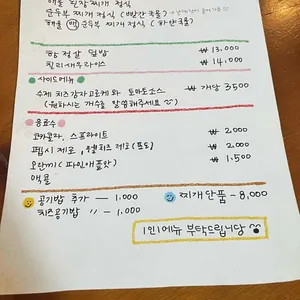 해물 된장 찌개 정식
순두부 찌개 정식 (빨간 국물)
해물 (백) 순두부 찌개 정식 (하얀 국물)
항정살 덮밥 ₩ 13,000
칠리새우라이스 ₩ 14,000
사이드메뉴
수제 치즈감자고로케와 토마토소스 ₩ 개당 3500
(원하시는 개수를 말씀해주세요)
음료수
코카콜라, 스프라이트 ₩ 2,000
펩시 제로, 웰치즈 제로 (포도) ₩ 2,000
오란씨 (파인애플맛) ₩ 1,500
맥콜
공기밥 추가 — 1,000
치즈공기밥 〃 — 1,000
찌개 단품 - 8,000
1인 1메뉴 부탁드립니당